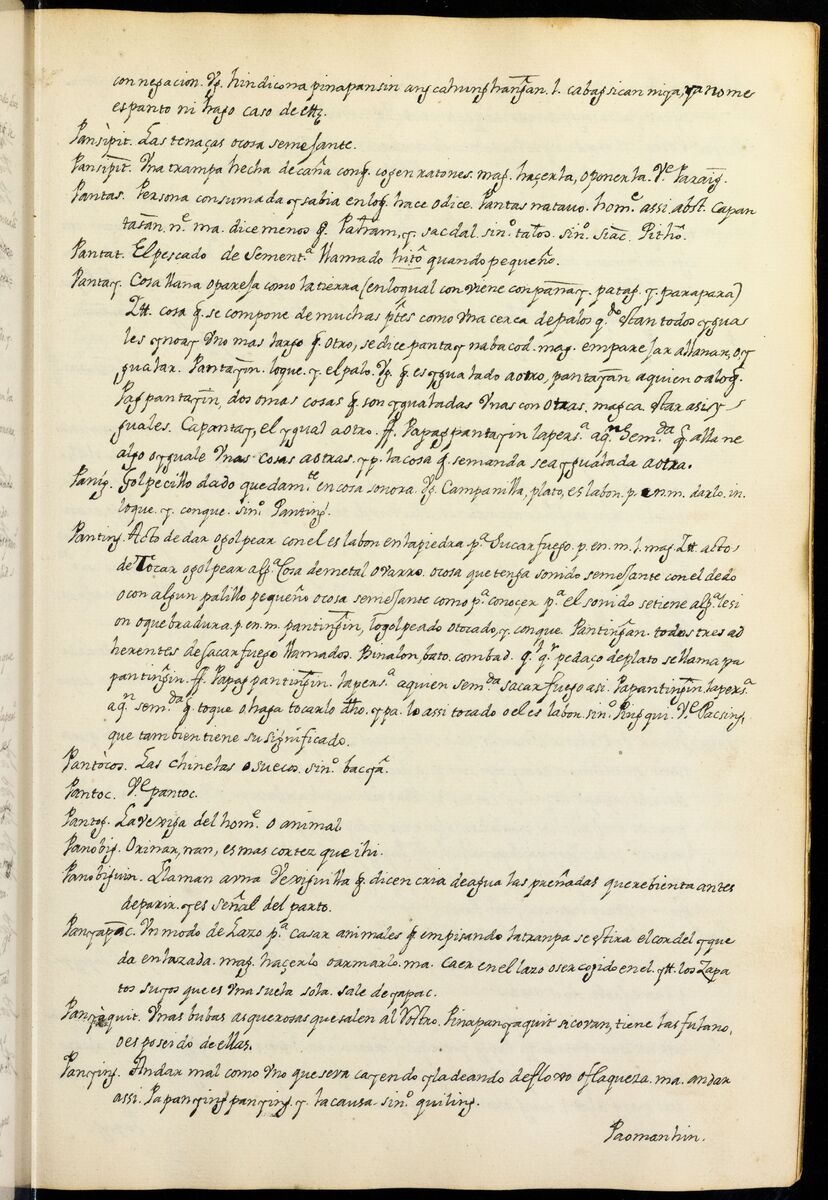 con negacion. Vg. hindico na pinapansin ang cahunghang̃an. l. cabagsican niya, ya no me
espanto ni hago caso de ett.ª
Pansìpit. Las tenaças o cosa semejante.
Pansipit. Vna trampa hecha de caña con q̃. cogen ratones. mag. haçerla, o ponerla. V.e Paraĩg.
Pantas. Persona consumada y sabia en lo q̃. hace o dice. Pantas na tauo. hom.e assi. abst. Capan
tasan. n.o ma. dice menos q̃. Paham, y. sacdal. sin.o talos. sin.o siac. Pithò.
Pantat. El pescado de Sement.ª llamado hitõ quando pequeño.
Pantay. Cosa llana o pareja como la tierra (en lo qual conviene con pãnay. patag. y. parapara)
Itt. cosa q̃. se compone de muchas p̃tes como vna cerca de palos q.do estan todos ygua
les y no ay vno mas largo q̃. otro, se dice pantay na bacod. mag. emparejar allanar, o y
gualar. Pantayin. lo que. y. el palo. Vg. q̃ es ygualado a otro, pantayan a quien o a lo q̃.
Pagpantayin, dos o mas cosas q̃. son ygualadas Vnas con otras. magca. estar asi y
guales. Capantay, el ygual a otro. ff. Papagpantayin la pers.ª a q.n Sem.da q̃. allane
algo o yguale vnas cosas a otras. y p. la cosa q̃. se manda sea ygualada a otra.
Panig. Golpecillo dado quedam.te en cosa sonora. Vg. Campanilla, plato, eslabon. p. en. m. darlo. in.
lo que. y. con que. sin.o Panting.
Panting. Acto de dar o golpear con el eslabon en la piedra p.ª sucar fuego. p. en. m. l. mag. Itt. acto
de Tocar o golpear alg.ª Cosa de metal o varro. o cosa que tenga sonido semejante con el dedo
o con algun palillo pequeño o cosa semejante como p.ª conoçer p.r el sonido se tiene alg.ª lesi
on o quebradura. p. en. m. pantingin, lo golpeado o tocado, y. con que. Pantingan. todos tres ad
herentes de sacar fuego llamados. Binalon, bato. combad. q.l q.r pedaço de plato se llama pa
pantingin. ff. Papagpantingin. la pers.ª a quien sem.da sacar fuego asi. Papantingin la pers.ª
a q.n sem.da q̃. toque o haga tocarlo dho. y pa. lo assi tocado o el eslabon. sin.o Pingqui. V.e Pacsing,
que tambien tiene su significado.
Pantòcos. Las chinelas o suecos. sin.o bacyâ.
Pantoc. V.e pantoc.
Pantog. La vexiga del hom.e o animal
Panobig. Orinar, nan, es mas cortez que ihi.
Panobiguin. Llaman a vna Vexiguilla q̃. dicen cria de agua las preñadas que rebienta antes
de parir. y es señal del parto.
Panyapac. Vn modo de Lazo p.ª casar animales q̃. em pisando la tranpa se estira el cordel y que
da enlazada. mag. haçerlo o armarlo. ma. caer en el lazo o ser cogido en el. ytt. los Zapa
tos suyos que es vna suela sola. sale de yapac.
Panyaquit. Vnas bubas asquerosas que salen al Rostro. Pinapanyaquit si covan, tiene las fulano,
o es poseido de ellas.
Panying. Andar mal como vno que se va cayendo y ladeando de floxo o flaqueza. ma. andar
assi. Papanyingpanying. y. la causa. sin.o quiling.
Paomanhin.